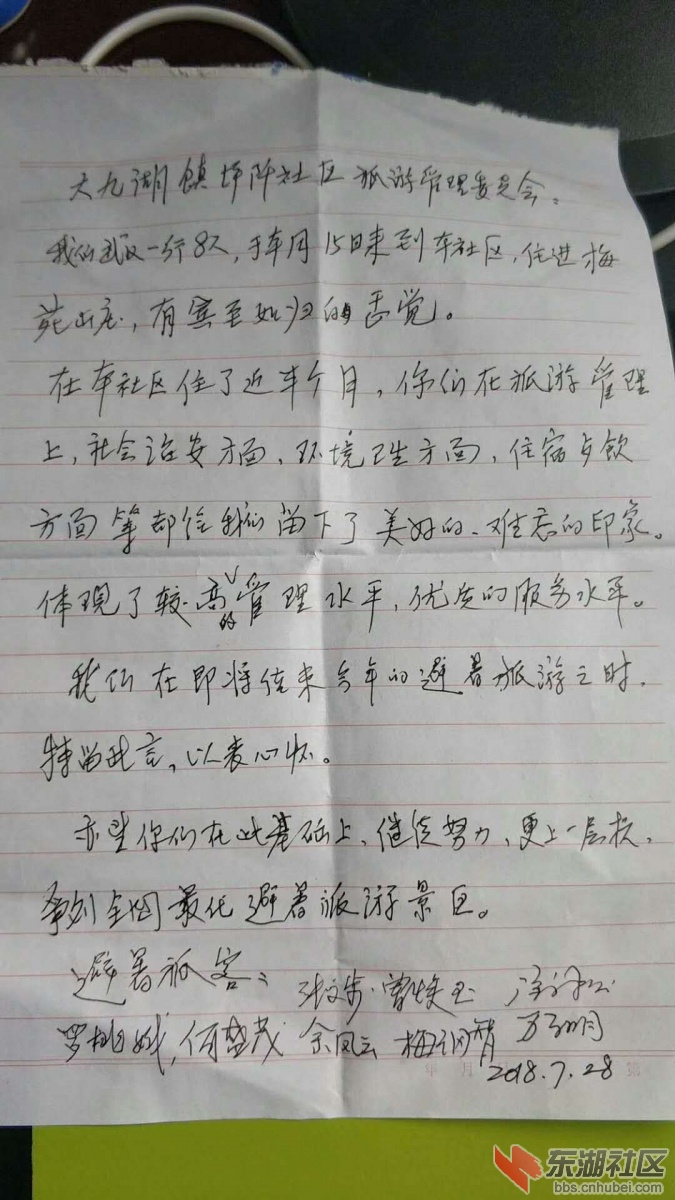 大九湖镇坪阡社区旅游管理委员会。
我们武汉一行8人,于本月15日来到本社区,住进梅
苑山庄,有宾至如归的感觉。
在本社区住了近半个月,你们在旅游管理
上,社会治安方面、环境卫生方面,住宿与饮
方面等都给我们留下了美好的、难忘的印象。
体现了较高的管理水平,优质的服务水平。
我们在即将结束今年的避暑旅游之时,
特留此言,以表心怀。
亦望你们在此基础上,继续努力,更上一层楼,
争创全国最优避暑旅游景区。
避暑旅客:
罗桃娥,何盛茂 余凤云
2018.7.28
东湖社区
bbs.cnhubei.com